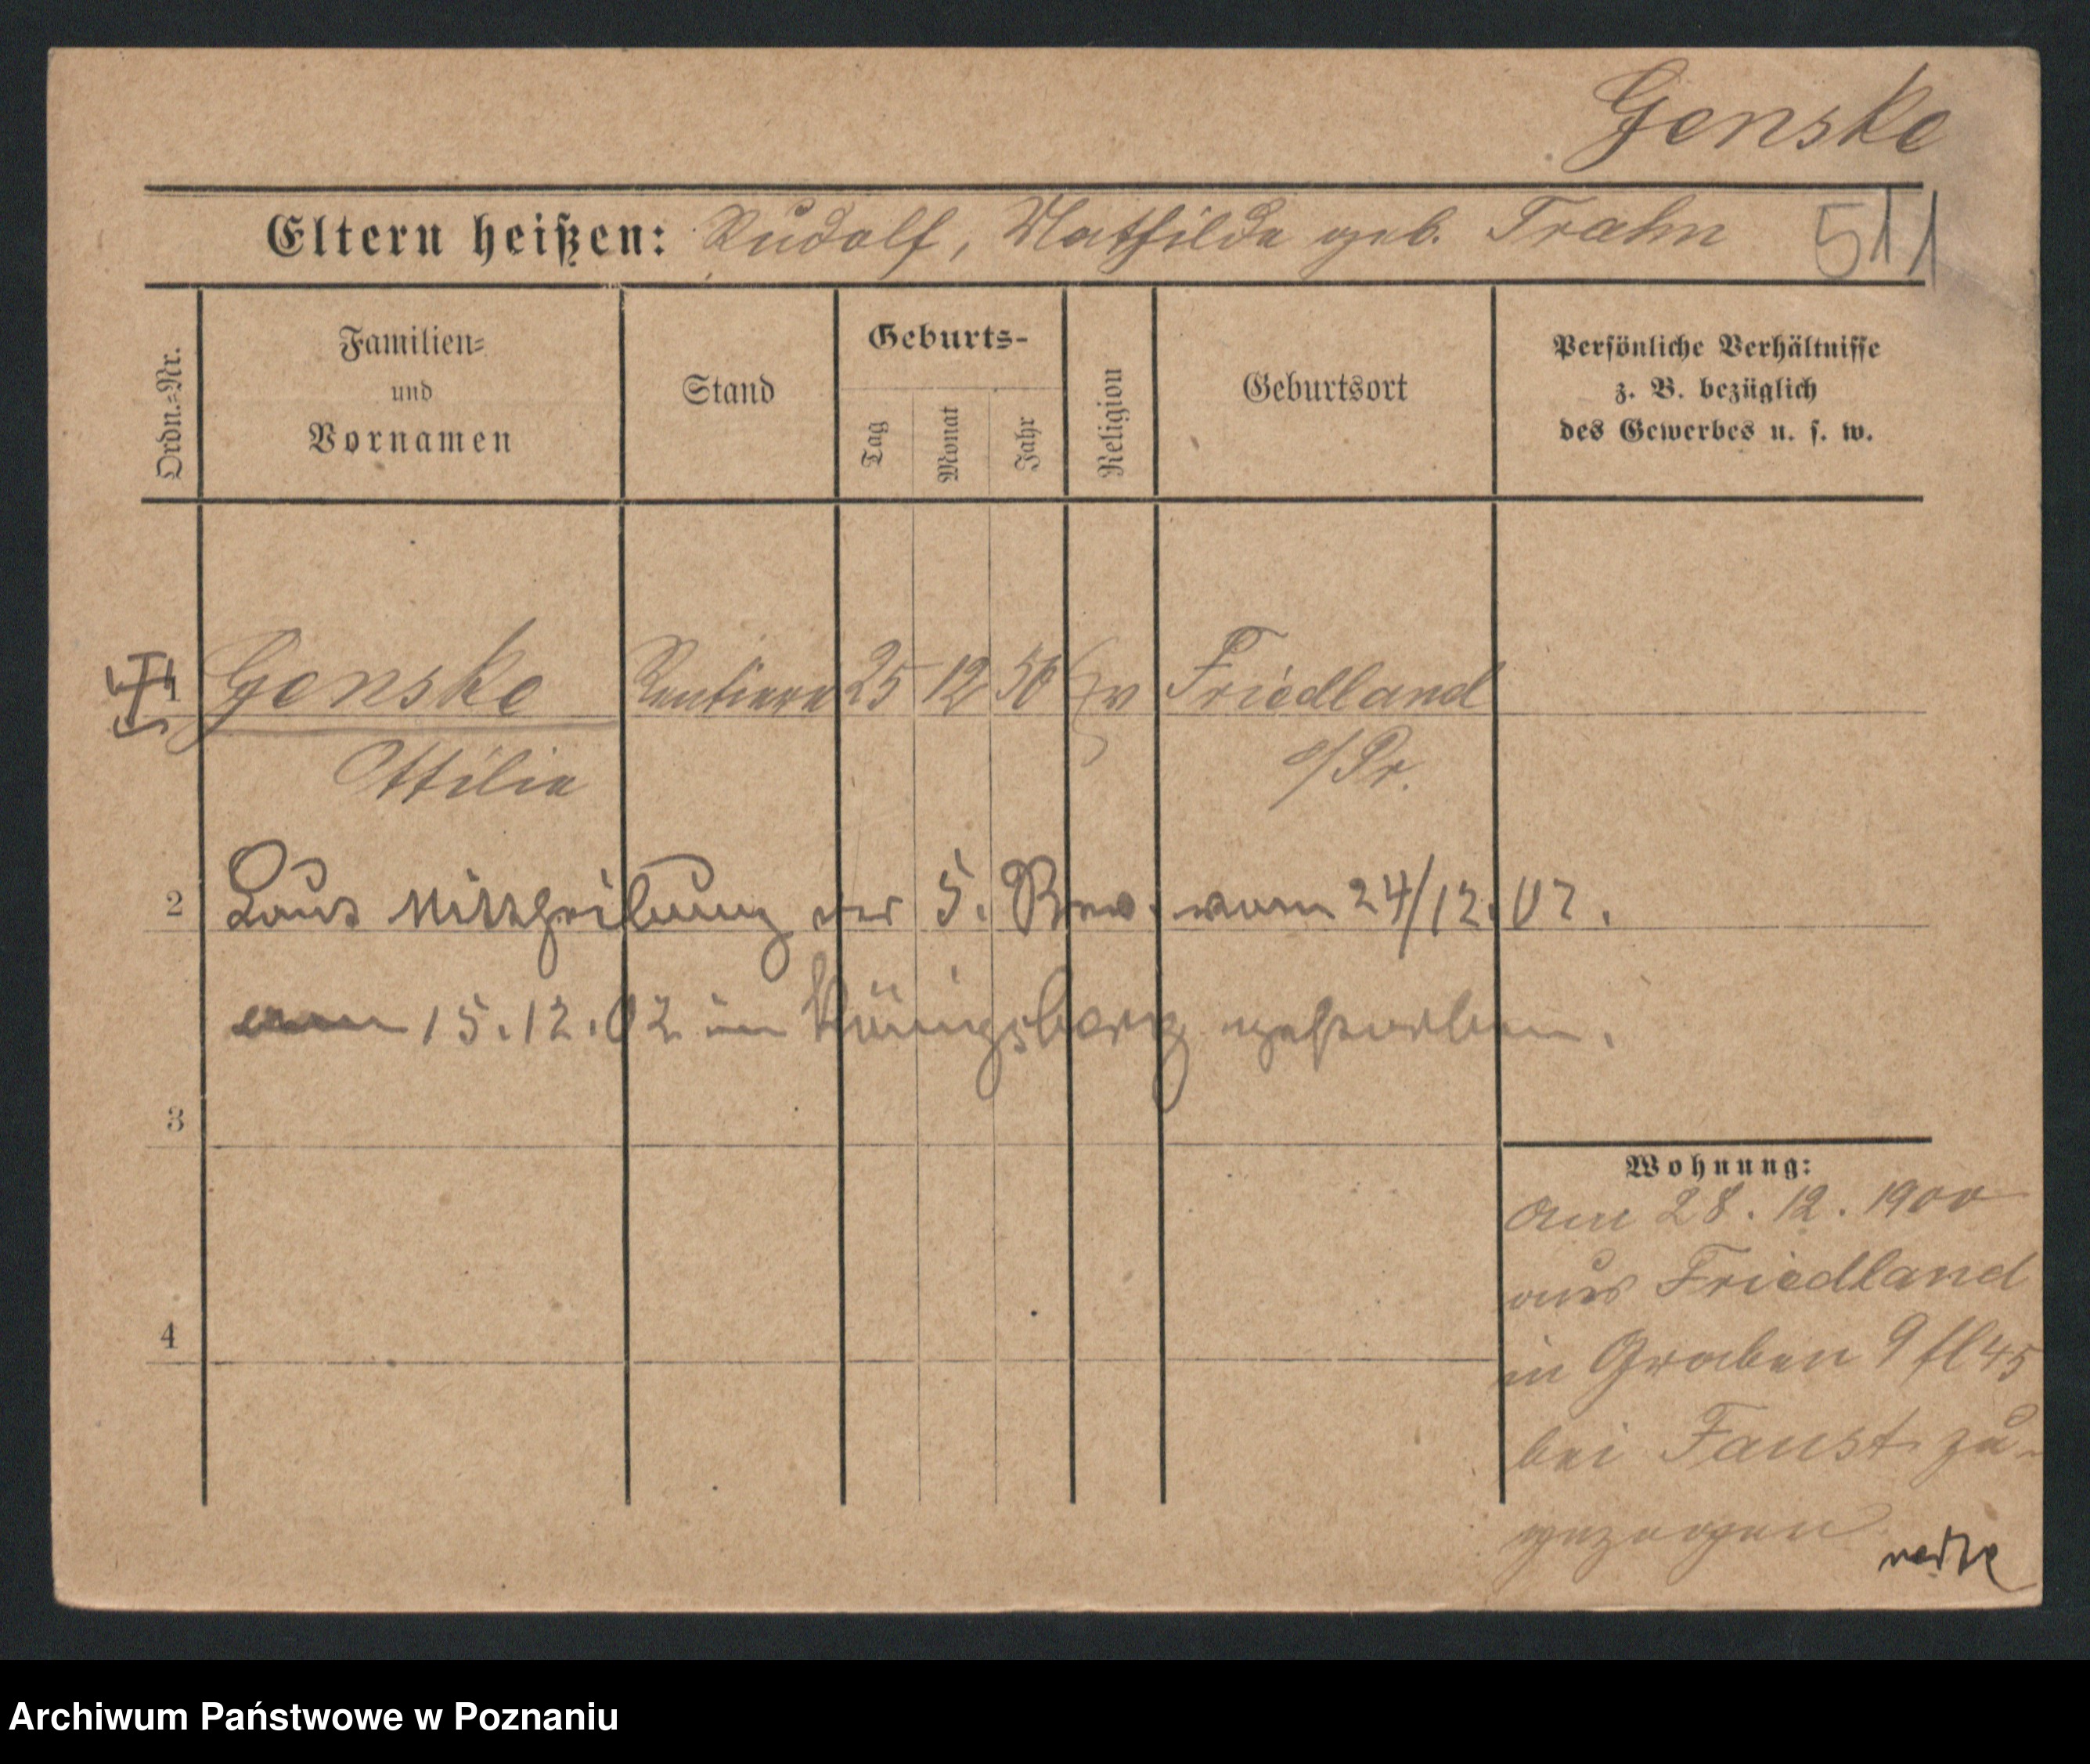 Genske
Eltern heißen: Rudolf, Mathilde geb. Trahn 511
Ordn.=Nr. Familien= und Vornamen Stand Geburts- Tag Monat Jahr Religion Geburtsort Persönliche Verhältnisse z. B. bezüglich des Gewerbes u. s. w.
1 Genske Rentiere 25 12 56 ev Friedland
Ottilie o/Pr.
2 Laut Mittheilung der 5. Rev. vom 24/12.02.
am 15.12.02 in Königsberg gestorben.
3
Wohnung:
Am 28. 12. 1900
aus Friedland
4
in Graben 9 fl 45
bei Faust zu-
gezogen
Archiwum Państwowe w Poznaniu